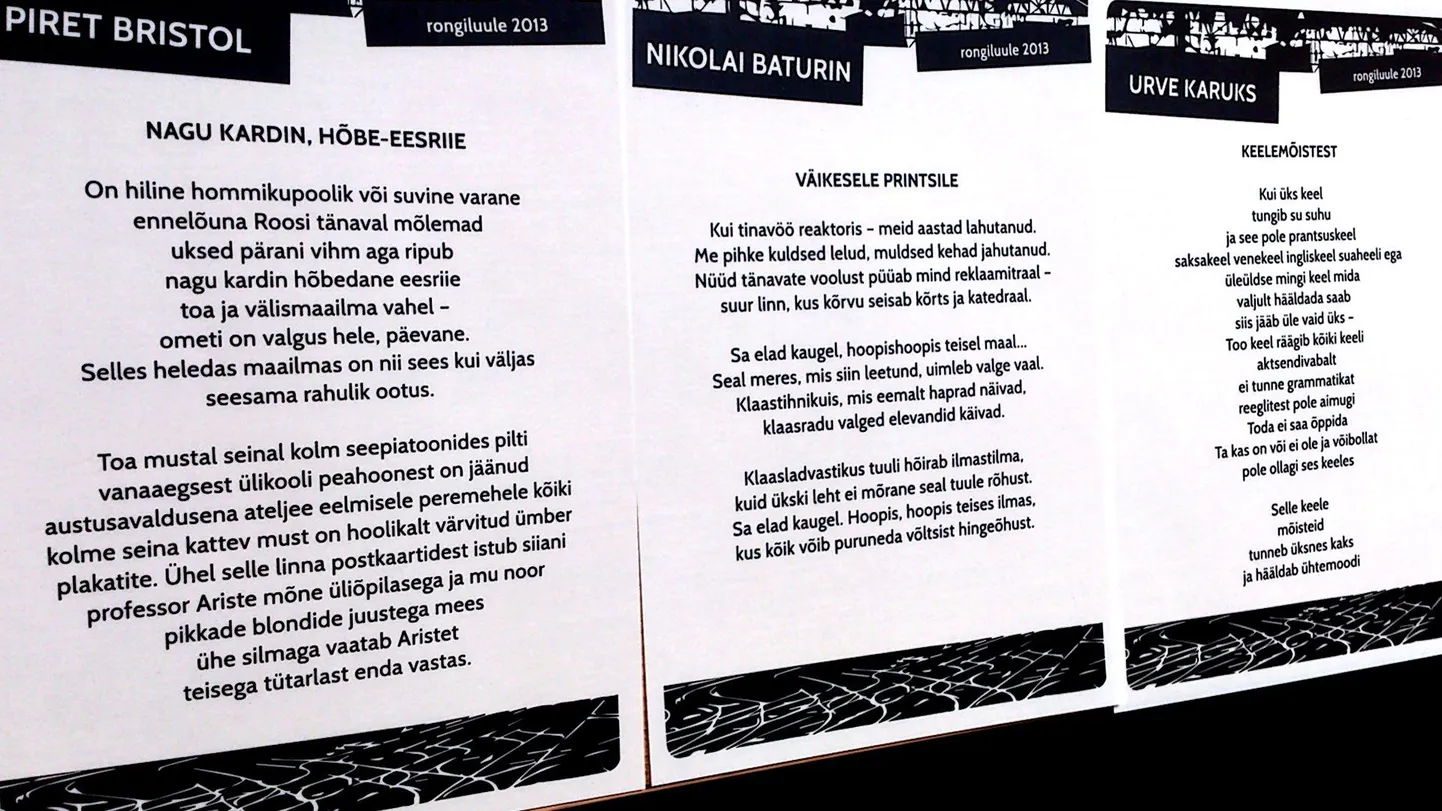 PIRET BRISTOL
rongiluule 2013
NAGU KARDIN, HÕBE-EESRIIE
On hiline hommikupoolik või suvine varane
ennelõuna Roosi tänaval mõlemad
uksed pärani vihm aga ripub
nagu kardin hõbedane eesriie
toa ja välismaailma vahel –
ometi on valgus hele, päevane.
Selles heledas maailmas on nii sees kui väljas
seesama rahulik ootus.
Toa mustal seinal kolm seepiatoonides pilti
vanaaegsest ülikooli peahoonest on jäänud
austusavaldusena ateljee eelmisele peremehele kõiki
kolme seina kattev must on hoolikalt värvitud ümber
plakatite. Ühel selle linna postkaartidest istub siiani
professor Ariste mõne üliõpilasega ja mu noor
pikkade blondide juustega mees
ühe silmaga vaatab Aristet
teisega tütarlast enda vastas.
NIKOLAI BATURIN
rongiluule 2013
VÄIKESELE PRINTSILE
Kui tinavöö reaktoris – meid aastad lahutanud.
Me pihke kuldsed lelud, muldsed kehad jahutanud.
Nüüd tänavate voolust püüab mind reklaamitraal –
suur linn, kus kõrvu seisab kõrts ja katedraal.
Sa elad kaugel, hoopishoopis teisel maal...
Seal meres, mis siin leetund, uimleb valge vaal.
Klaastihnikuis, mis eemalt haprad näivad,
klaasradu valged elevandid käivad.
Klaasladvastikus tuuli hõirab ilmastilma,
kuid ükski leht ei mõrane seal tuule rõhust.
Sa elad kaugel. Hoopis, hoopis teises ilmas,
kus kõik võib puruneda võltsist hingeõhust.
URVE KARUKS
rongiluule 2013
KEELEMÕISTEST
Kui üks keel
tungib su suhu
ja see pole prantsuskeel
saksakeel venekeel ingliskeel suaheeli ega
üleüldse mingi keel mida
valjult hääldada saab
siis jääb üle vaid üks –
Too keel räägib kõiki keeli
aktsendivabalt
ei tunne grammatikat
reeglitest pole aimugi
Toda ei saa õppida
Ta kas on või ei ole ja võibollat
pole ollagi ses keeles
Selle keele
mõisteid
tunneb üksnes kaks
ja hääldab ühtemoodi